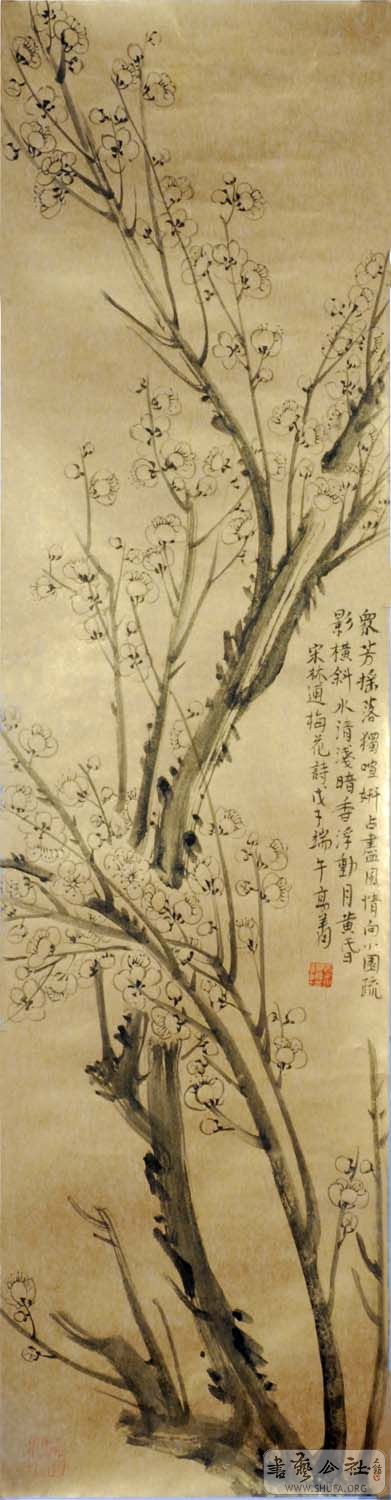 眾芳搖落獨喧妍占盡風情向小園疏
影橫斜水清淺暗香浮動月黃昏
宋林逋梅花詩戊子端午高華
書藝公社
WWW.SHUFA.ORG